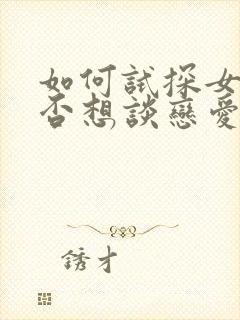 如何試探女
否想談戀愛
銹才